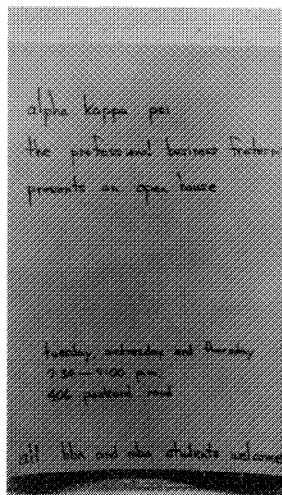 alpha kappa psi
the professional business fratern
presents an open house
tuesday, wednesday and thursday
7:30 — 9:00 p.m.
406 road
all bba and mba students welcome